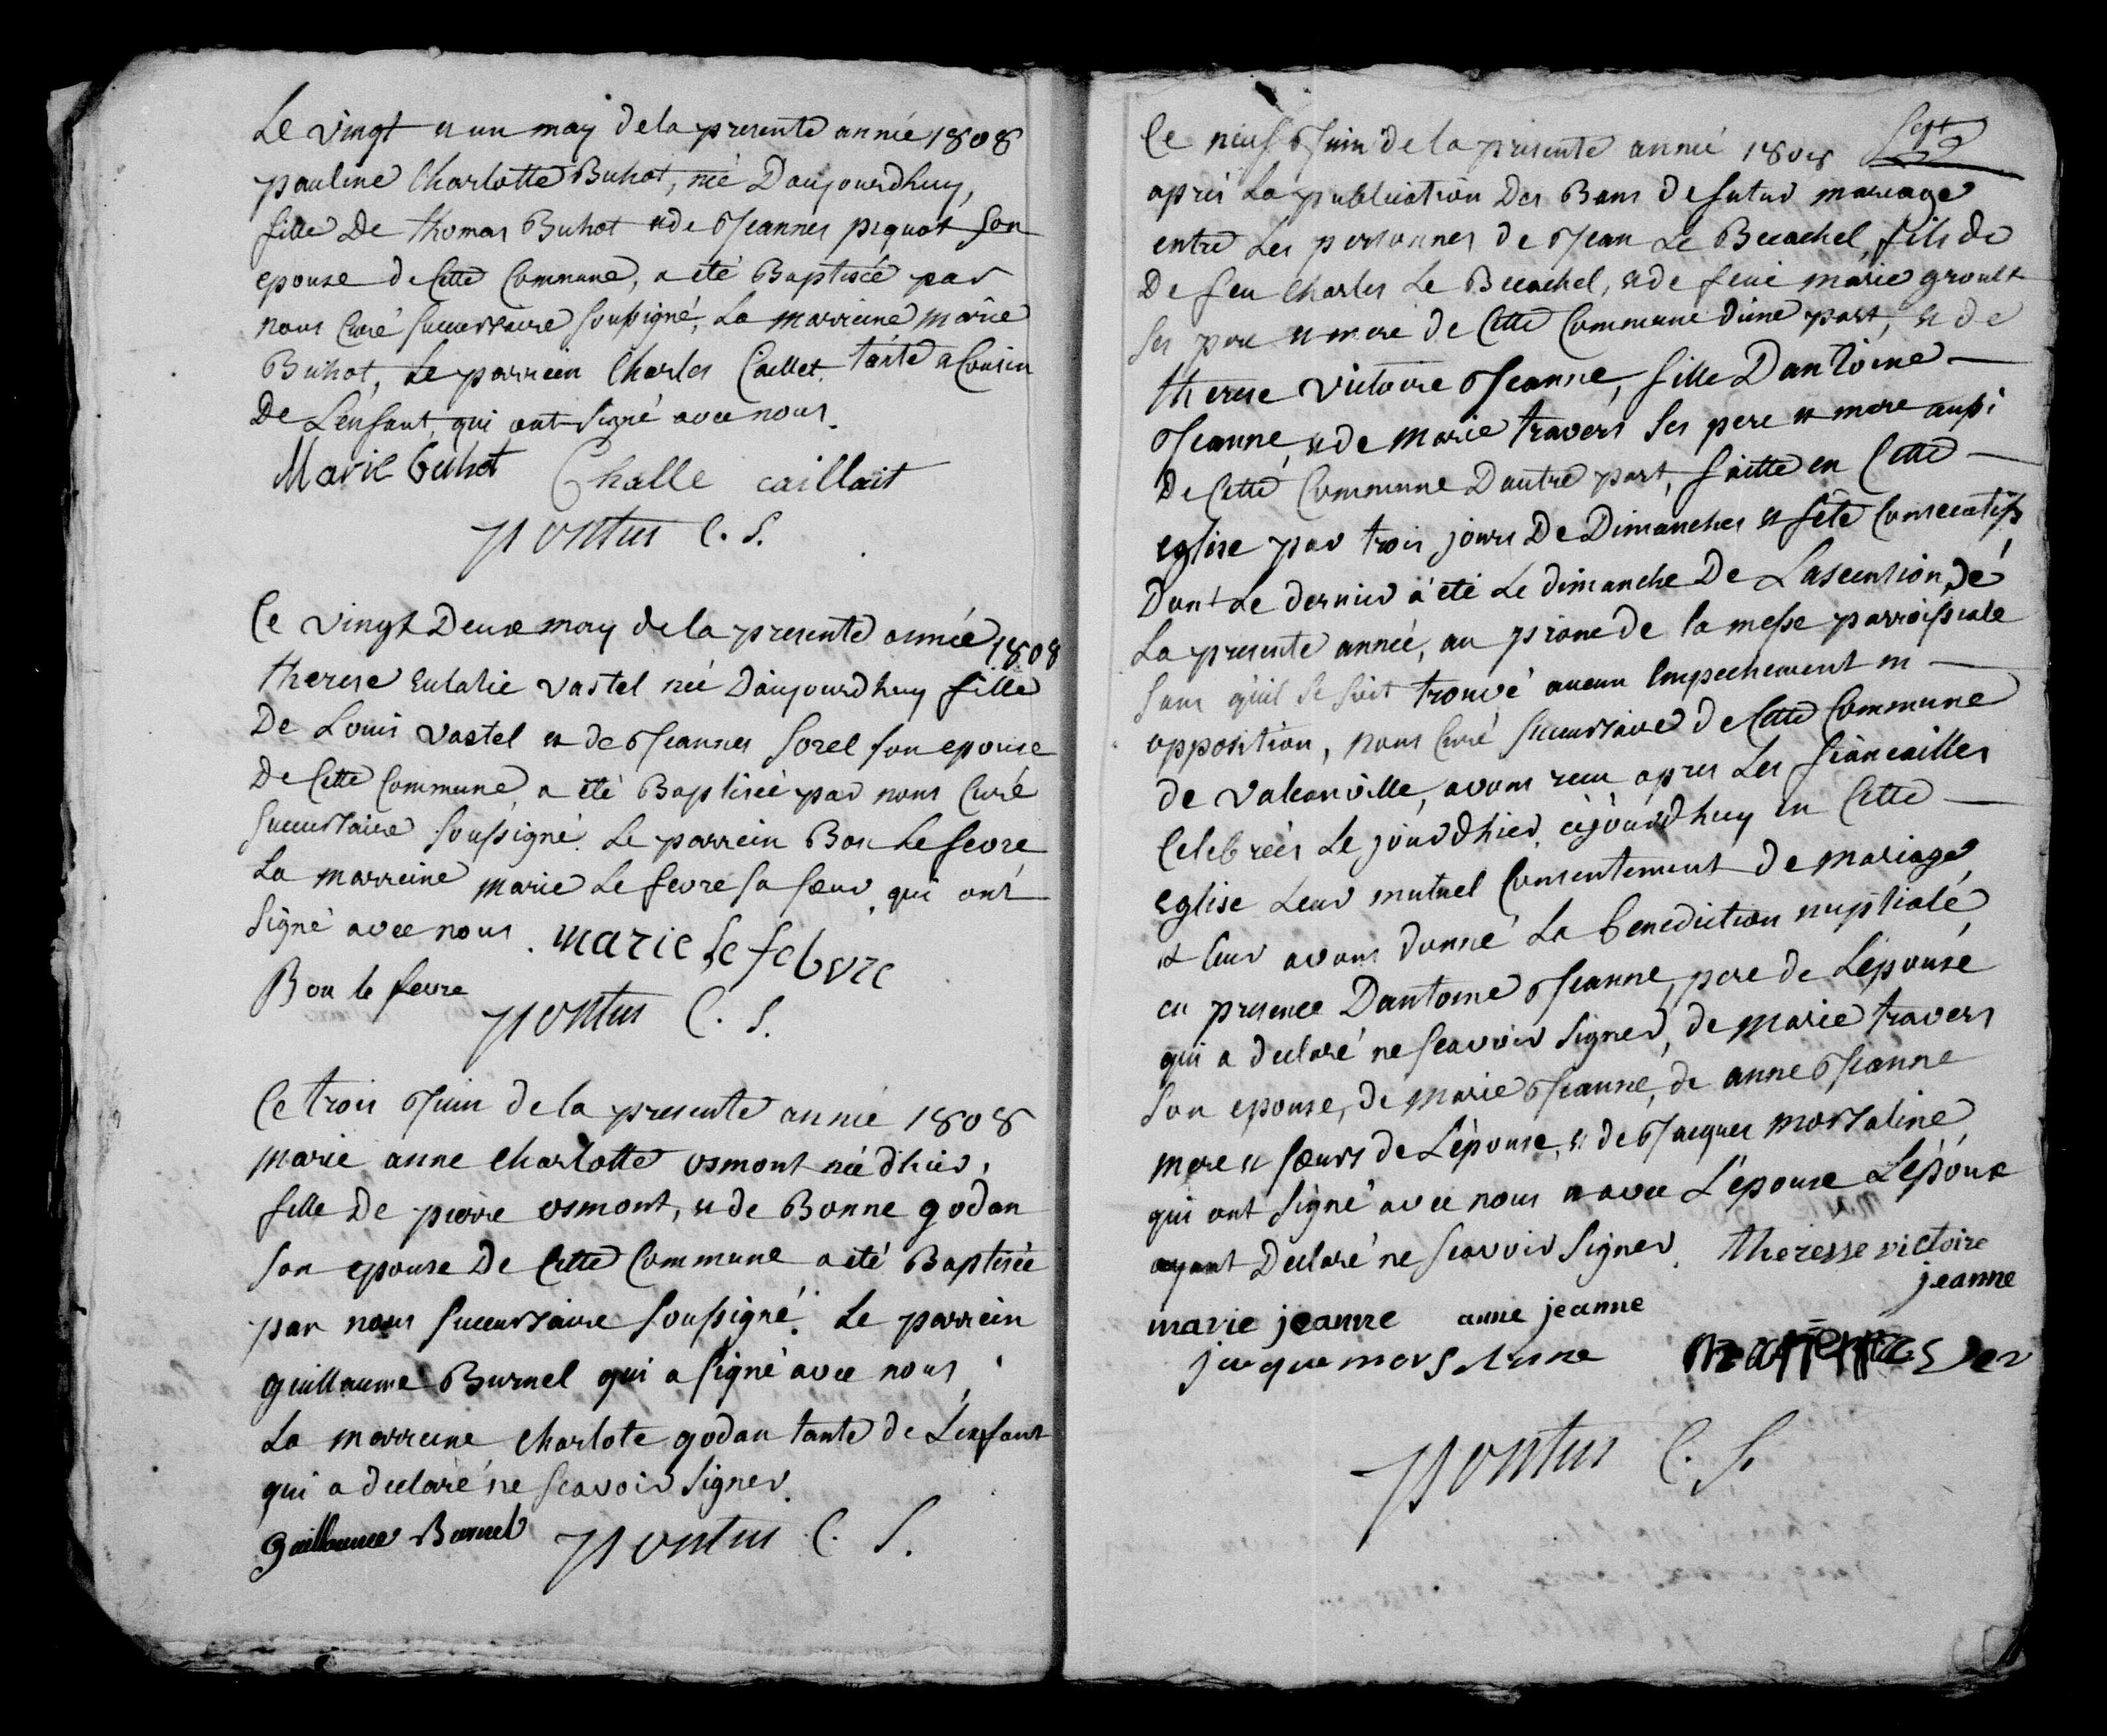 Le vingt et un may de la presente année 1808
pauline Charlotte Buhot, née Daujourdhuy,
fille De thomas Buhot et de Jeannes piquot son
epouse de Cette Commune, a été Baptisée par
nous Curé succursaire soussigné, La marreine marie
Buhot, Le parrein Charles Caillet, tante et Cousin
De L'enfant, qui ont signé avec nous.
Marie buhot Challe caillait
pontus C. S.
Ce vingt Deux may de la presente année 1808
therese Eulalie vastel née Daujourdhuy fille
De Louis vastel et de Jeannes Sorel son epouse
De Cette Commune, a été Baptisée par nous Curé
succursaire soussigné. Le parrein Bon Le fevre
La marreine marie Le fevre sa sœur, qui ont
signé avec nous. marie Le febvre
Bon le fevre pontus C. S.
Ce trois Juin de la presente année 1808
marie anne Charlotte osmont née d'hier,
fille De pierre osmont, et de Bonne godan
son epouse De Cette Commune a été Baptisée
par nous succursaire soussigné. Le parrein
guillaume Burnel qui a signé avec nous,
La marreine Charlote godan tante de L'enfant
qui a declaré ne scavoir signer.
guillaume Burnel pontus C. S.
Sept
Ce neuf Juin de la presente année 1808
après La publication Des Bans de futur mariage
entre Les personnes de Jean Le Becachel, fils de
De feu Charles Le Becachel, et de feue marie groult
ses pere et mere de Cette Commune d'une part, et de
therese victoire Jeanne, fille Dantoine
Jeanne, et de marie travers ses pere et mere aussi
De Cette Commune Dautre part, faitte en Cette
eglise par trois jours De Dimanches et fête Consecutifs
Dont Le dernier a été Le dimanche De Lascension, de
La presente année, au prone de la messe parroissiale
sans qu'il se soit trouvé aucun Empechement ni
opposition, nous Curé succursaire de Cette Commune
de valcanville, avons recu apres Les fiancailles
Celebrées Le jourdhier, cejourdhuy en Cette
eglise Leur mutuel Consentement de mariage,
et leur avons donné La benediction nuptiale,
en presence Dantoine Jeanne, pere de L'epouse
qui a declaré ne scavoir signer, de marie travers
son epouse, de marie Jeanne, de anne Jeanne
mere et sœurs de L'épouse, et de Jacques morsaline,
qui ont signé avec nous et avec L'epouse L'epoux
ayant Declaré ne scavoir signer. theresse victoire
jeanne
marie jeanne anne jeanne
jacque
pontus C. S.